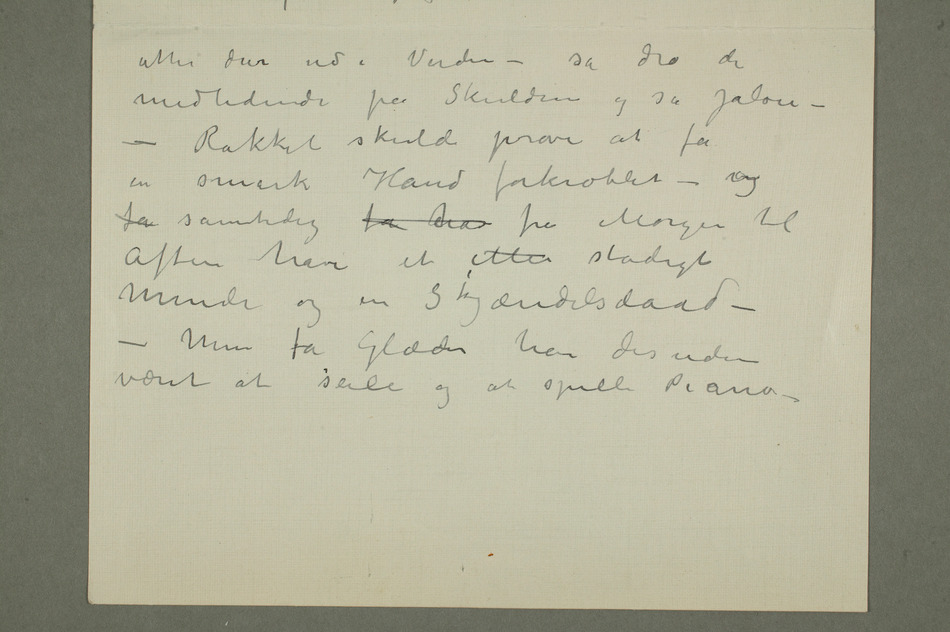 atter der ud i Verden – så dro de
medlidende på Skuldren og sa Jalou –
– Rakket skulde prøve at få
en smuk Hand forkrøblet – og
få samtidig få ha fra Morgen til
Aften have et etter stadigt
Minde og en Skjændelsdaad –
– Min få Glæder har desuden
været at seile og at spille Piano –